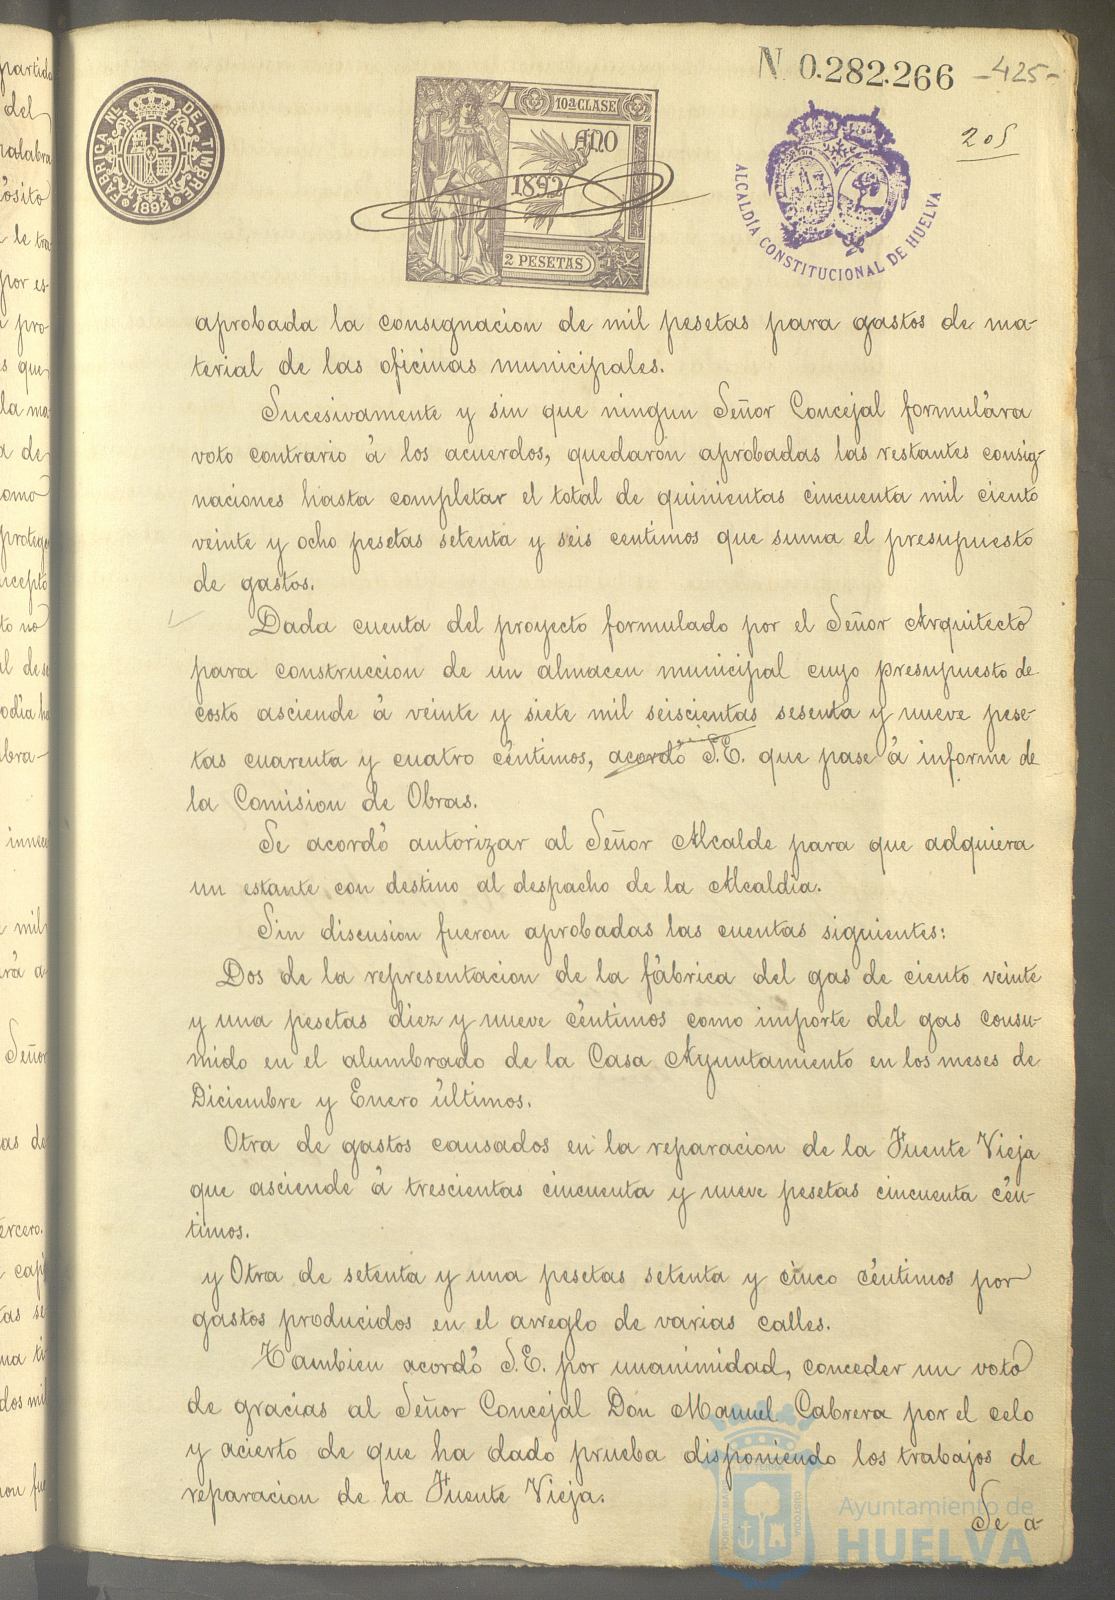 N. 0.282.266 -425-
205
FABRICA NL. DEL TIMBRE
1892
10ª CLASE
AÑO
1892
2 PESETAS
ALCALDÍA CONSTITUCIONAL DE HUELVA
aprobada la consignacion de mil pesetas para gastos de ma-
terial de las oficinas municipales.
Sucesivamente y sin que ningun Señor Concejal formulára
voto contrario á los acuerdos, quedaron aprobadas las restantes consig-
naciones hasta completar el total de quinientas cincuenta mil ciento
veinte y ocho pesetas setenta y seis centimos que suma el presupuesto
de gastos.
Dada cuenta del proyecto formulado por el Señor Arquitecto
para construccion de un almacen municipal cuyo presupuesto de
costo asciende á veinte y siete mil seiscientas sesenta y nueve pese-
tas cuarenta y cuatro céntimos, acordó S.E. que pase á informe de
la Comision de Obras.
Se acordó autorizar al Señor Alcalde para que adquiera
un estante con destino al despacho de la Alcaldia.
Sin discusion fueron aprobadas las cuentas siguientes:
Dos de la representacion de la fábrica del gas de ciento veinte
y una pesetas diez y nueve céntimos como importe del gas consu-
mido en el alumbrado de la Casa Ayuntamiento en los meses de
Diciembre y Enero últimos.
Otra de gastos causados en la reparacion de la Fuente Vieja
que asciende á trescientas cincuenta y nueve pesetas cincuenta cén-
timos.
y Otra de setenta y una pesetas setenta y cinco céntimos por
gastos producidos en el arreglo de varias calles.
Tambien acordó S.E. por unanimidad, conceder un voto
de gracias al Señor Concejal Don Manuel Cabrera por el celo
y acierto de que ha dado prueba disponiendo los trabajos de
reparacion de la Fuente Vieja.
Se a-
Ayuntamiento de
HUELVA